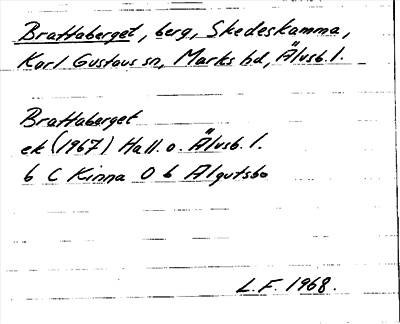 Brattaberget, berg, Skedeskamma,
Karl Gustavs sn, Marks hd, Älvsb. l.
Brattaberget
ek (1967) Hall. o. Älvsb. l.
6 C Kinna 0 b Algutsbo
L. F. 1968.